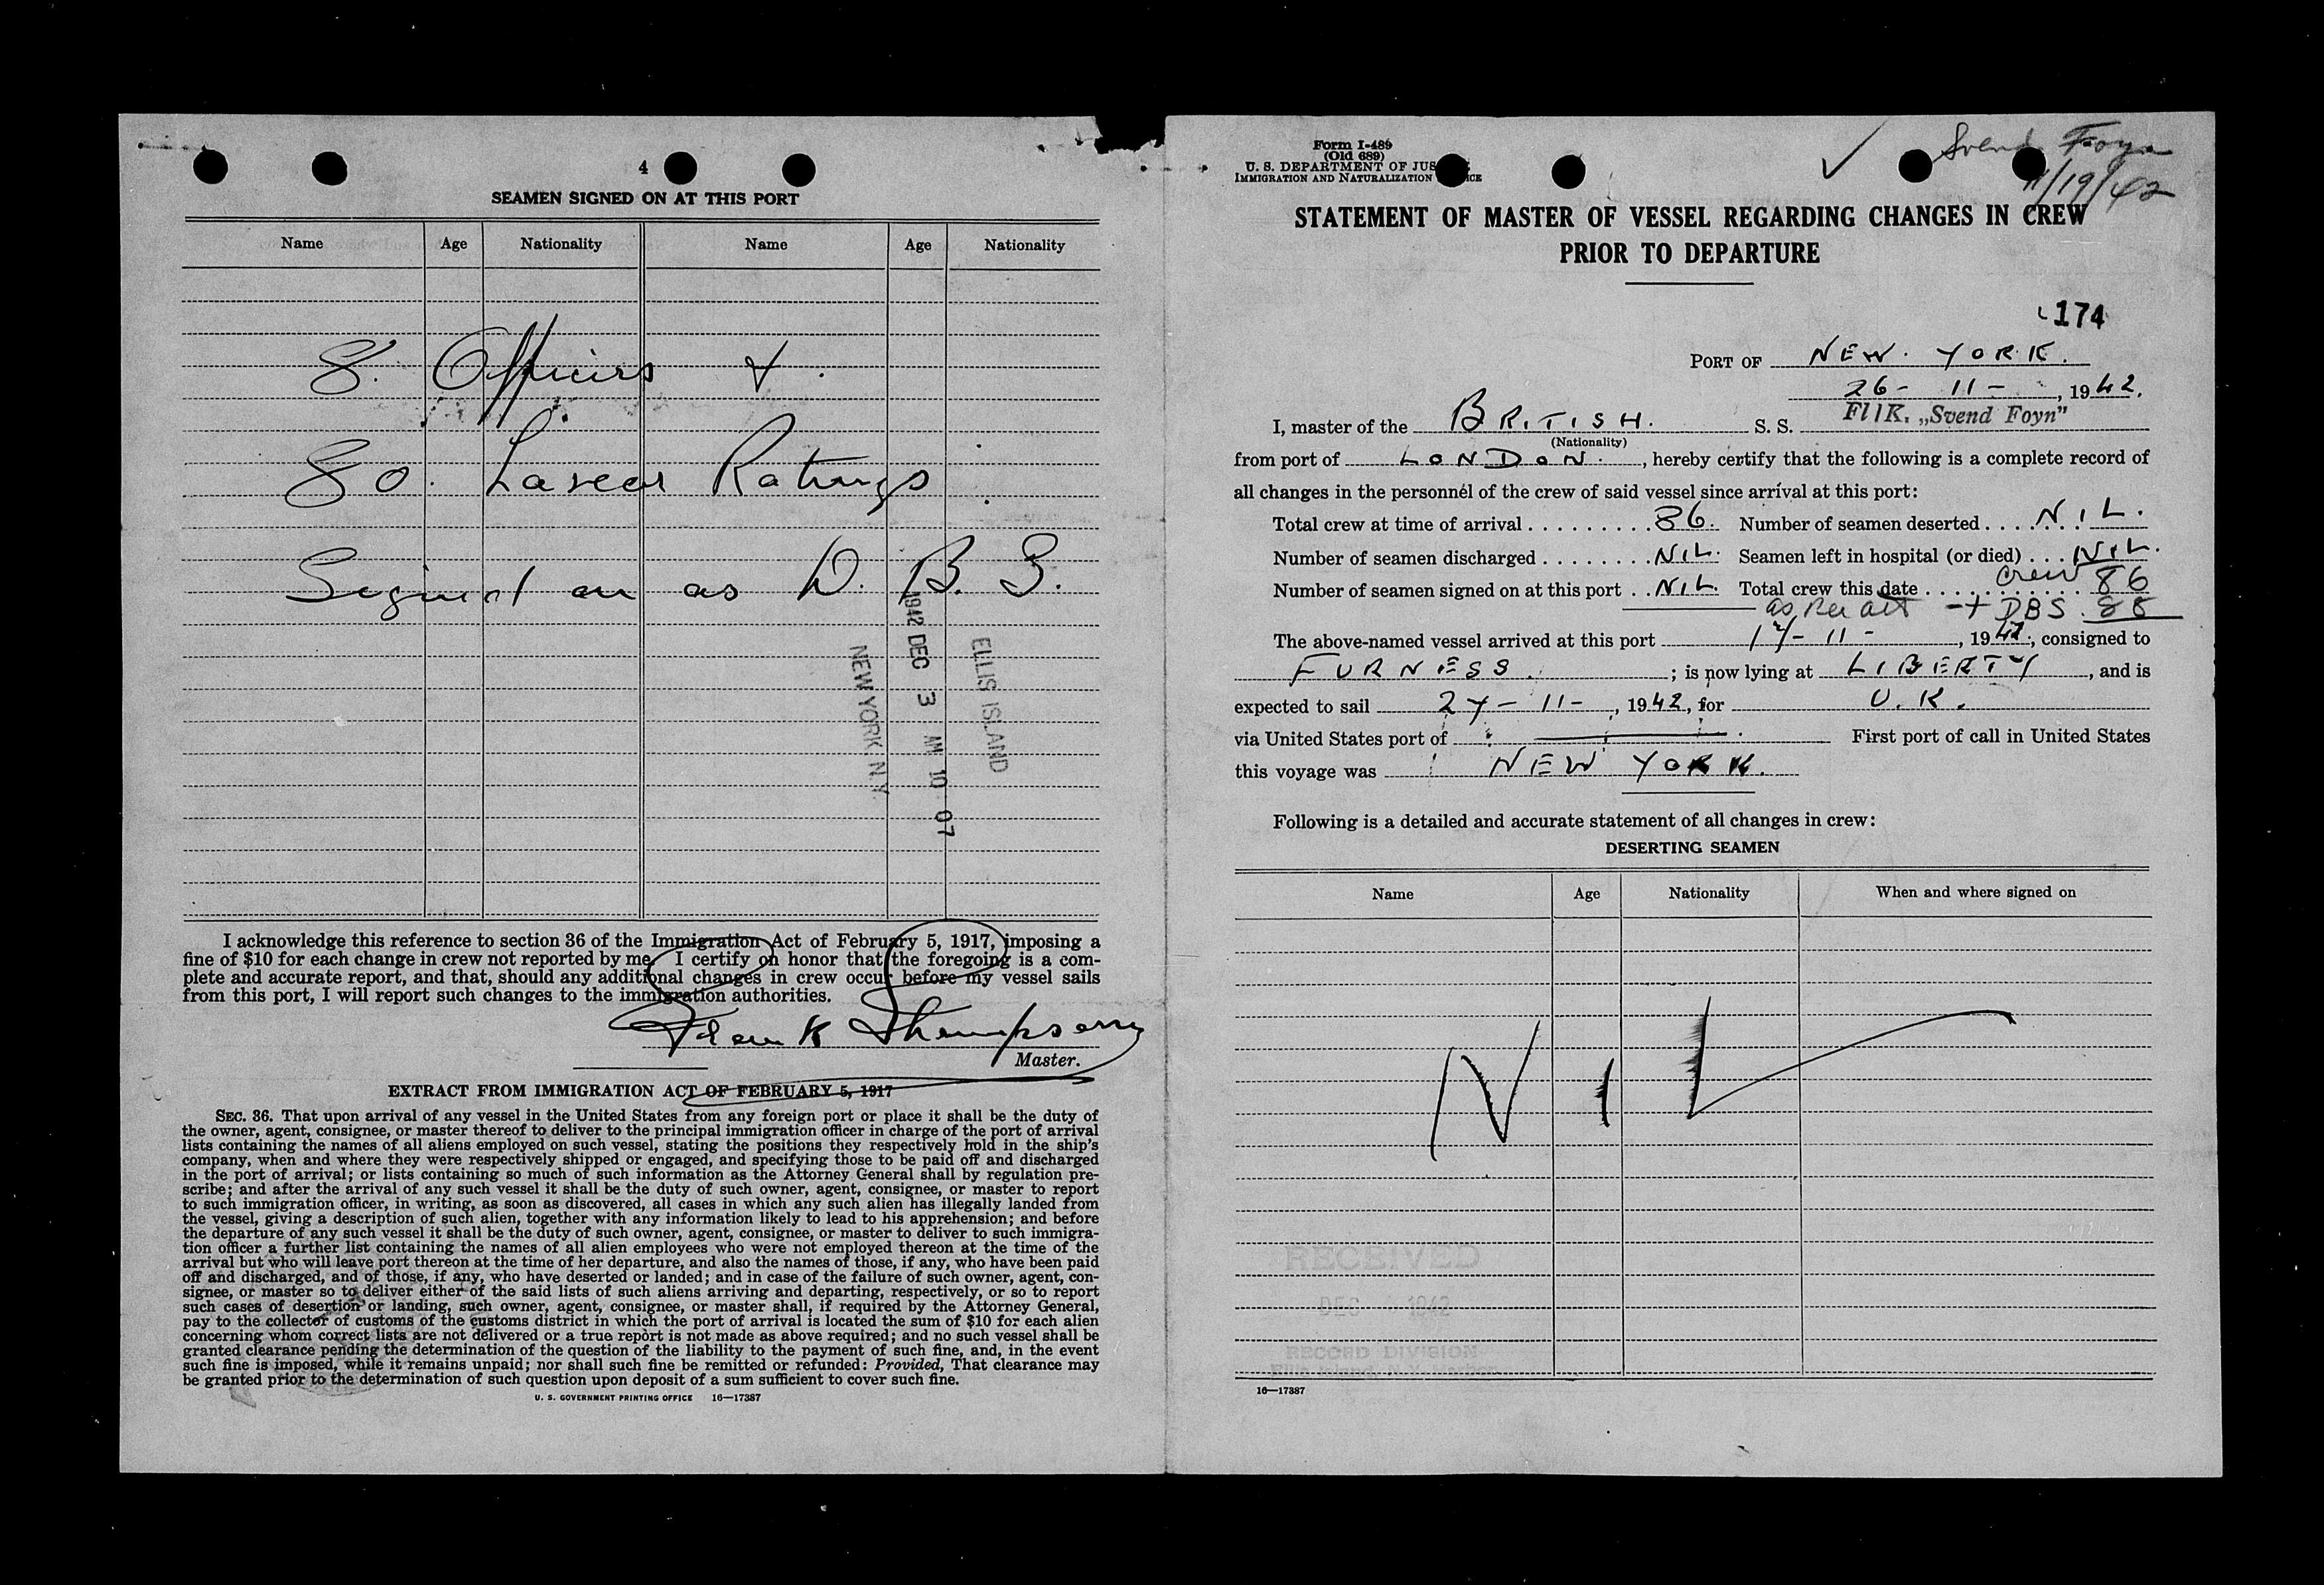 4
SEAMEN SIGNED ON AT THIS PORT
Name Age Nationality Name Age Nationality
8. Officers &.
80. Lascar Ratings.
Signed on as D. B. S.
ELLIS ISLAND
1942 DEC 3 AM 10 07
NEW YORK N.Y.
I acknowledge this reference to section 36 of the Immigration Act of February 5, 1917, imposing a
fine of $10 for each change in crew not reported by me. I certify on honor that the foregoing is a com-
plete and accurate report, and that, should any additional changes in crew occur before my vessel sails
from this port, I will report such changes to the immigration authorities.
Frank Thompson
Master.
EXTRACT FROM IMMIGRATION ACT OF FEBRUARY 5, 1917
SEC. 36. That upon arrival of any vessel in the United States from any foreign port or place it shall be the duty of
the owner, agent, consignee, or master thereof to deliver to the principal immigration officer in charge of the port of arrival
lists containing the names of all aliens employed on such vessel, stating the positions they respectively hold in the ship's
company, when and where they were respectively shipped or engaged, and specifying those to be paid off and discharged
in the port of arrival; or lists containing so much of such information as the Attorney General shall by regulation pre-
scribe; and after the arrival of any such vessel it shall be the duty of such owner, agent, consignee, or master to report
to such immigration officer, in writing, as soon as discovered, all cases in which any such alien has illegally landed from
the vessel, giving a description of such alien, together with any information likely to lead to his apprehension; and before
the departure of any such vessel it shall be the duty of such owner, agent, consignee, or master to deliver to such immigra-
tion officer a further list containing the names of all alien employees who were not employed thereon at the time of the
arrival but who will leave port thereon at the time of her departure, and also the names of those, if any, who have been paid
off and discharged, and of those, if any, who have deserted or landed; and in case of the failure of such owner, agent, con-
signee, or master so to deliver either of the said lists of such aliens arriving and departing, respectively, or so to report
such cases of desertion or landing, such owner, agent, consignee, or master shall, if required by the Attorney General,
pay to the collector of customs of the customs district in which the port of arrival is located the sum of $10 for each alien
concerning whom correct lists are not delivered or a true report is not made as above required; and no such vessel shall be
granted clearance pending the determination of the question of the liability to the payment of such fine, and, in the event
such fine is imposed, while it remains unpaid; nor shall such fine be remitted or refunded: Provided, That clearance may
be granted prior to the determination of such question upon deposit of a sum sufficient to cover such fine.
U. S. GOVERNMENT PRINTING OFFICE 16—17387
Form I-489
(Old 689)
U. S. DEPARTMENT OF JUS
IMMIGRATION AND NATURALIZATION ICE
Svend Foyn
11/19/42
STATEMENT OF MASTER OF VESSEL REGARDING CHANGES IN CREW
PRIOR TO DEPARTURE
174
PORT OF NEW. YORK.
26- 11-, 1942.
I, master of the BRITISH. S. S. Fl/K. „Svend Foyn"
(Nationality)
from port of LONDON., hereby certify that the following is a complete record of
all changes in the personnel of the crew of said vessel since arrival at this port:
Total crew at time of arrival 86. Number of seamen deserted NIL.
Number of seamen discharged NIL. Seamen left in hospital (or died) NIL.
Number of seamen signed on at this port NIL. Total crew this date crew 86
+ DBS. 88
The above-named vessel arrived at this port 11-, 1942, consigned to
FURNESS.; is now lying at LIBERTY, and is
expected to sail 27- 11-, 1942, for U.K.
via United States port of First port of call in United States
this voyage was NEW YORK.
Following is a detailed and accurate statement of all changes in crew:
DESERTING SEAMEN
Name Age Nationality When and where signed on
NIL
RECEIVED
DEC 1942
RECORD DIVISION
Ellis Island, N.Y. Harbor
16—17387